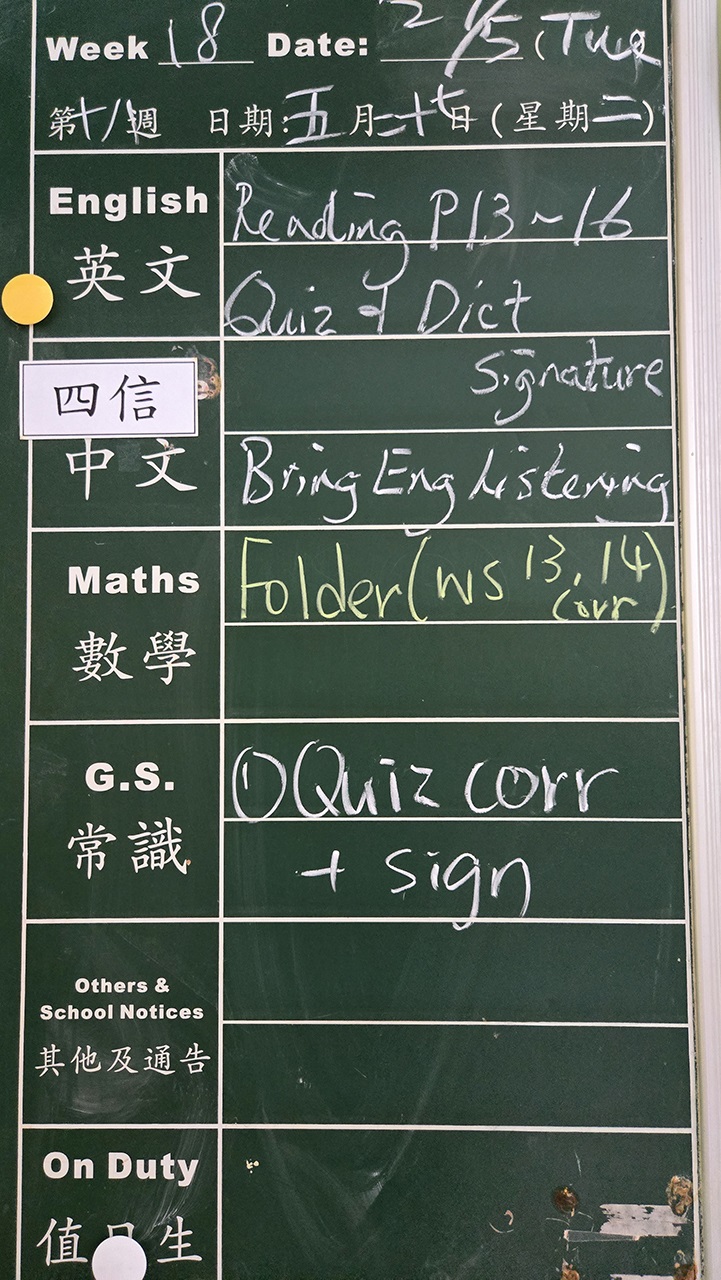 Week 18 Date: 2/5 (Tue
第十八週 日期:五月二十七日(星期二)
English
英文
Reading P13~16
Quiz & Dict
Signature
四信
中文
Bring Eng Listening
Maths
數學
Folder (WS 13, 14)
corr
G.S.
常識
① Quiz corr
+ sign
Others &
School Notices
其他及通告
On Duty
值日生